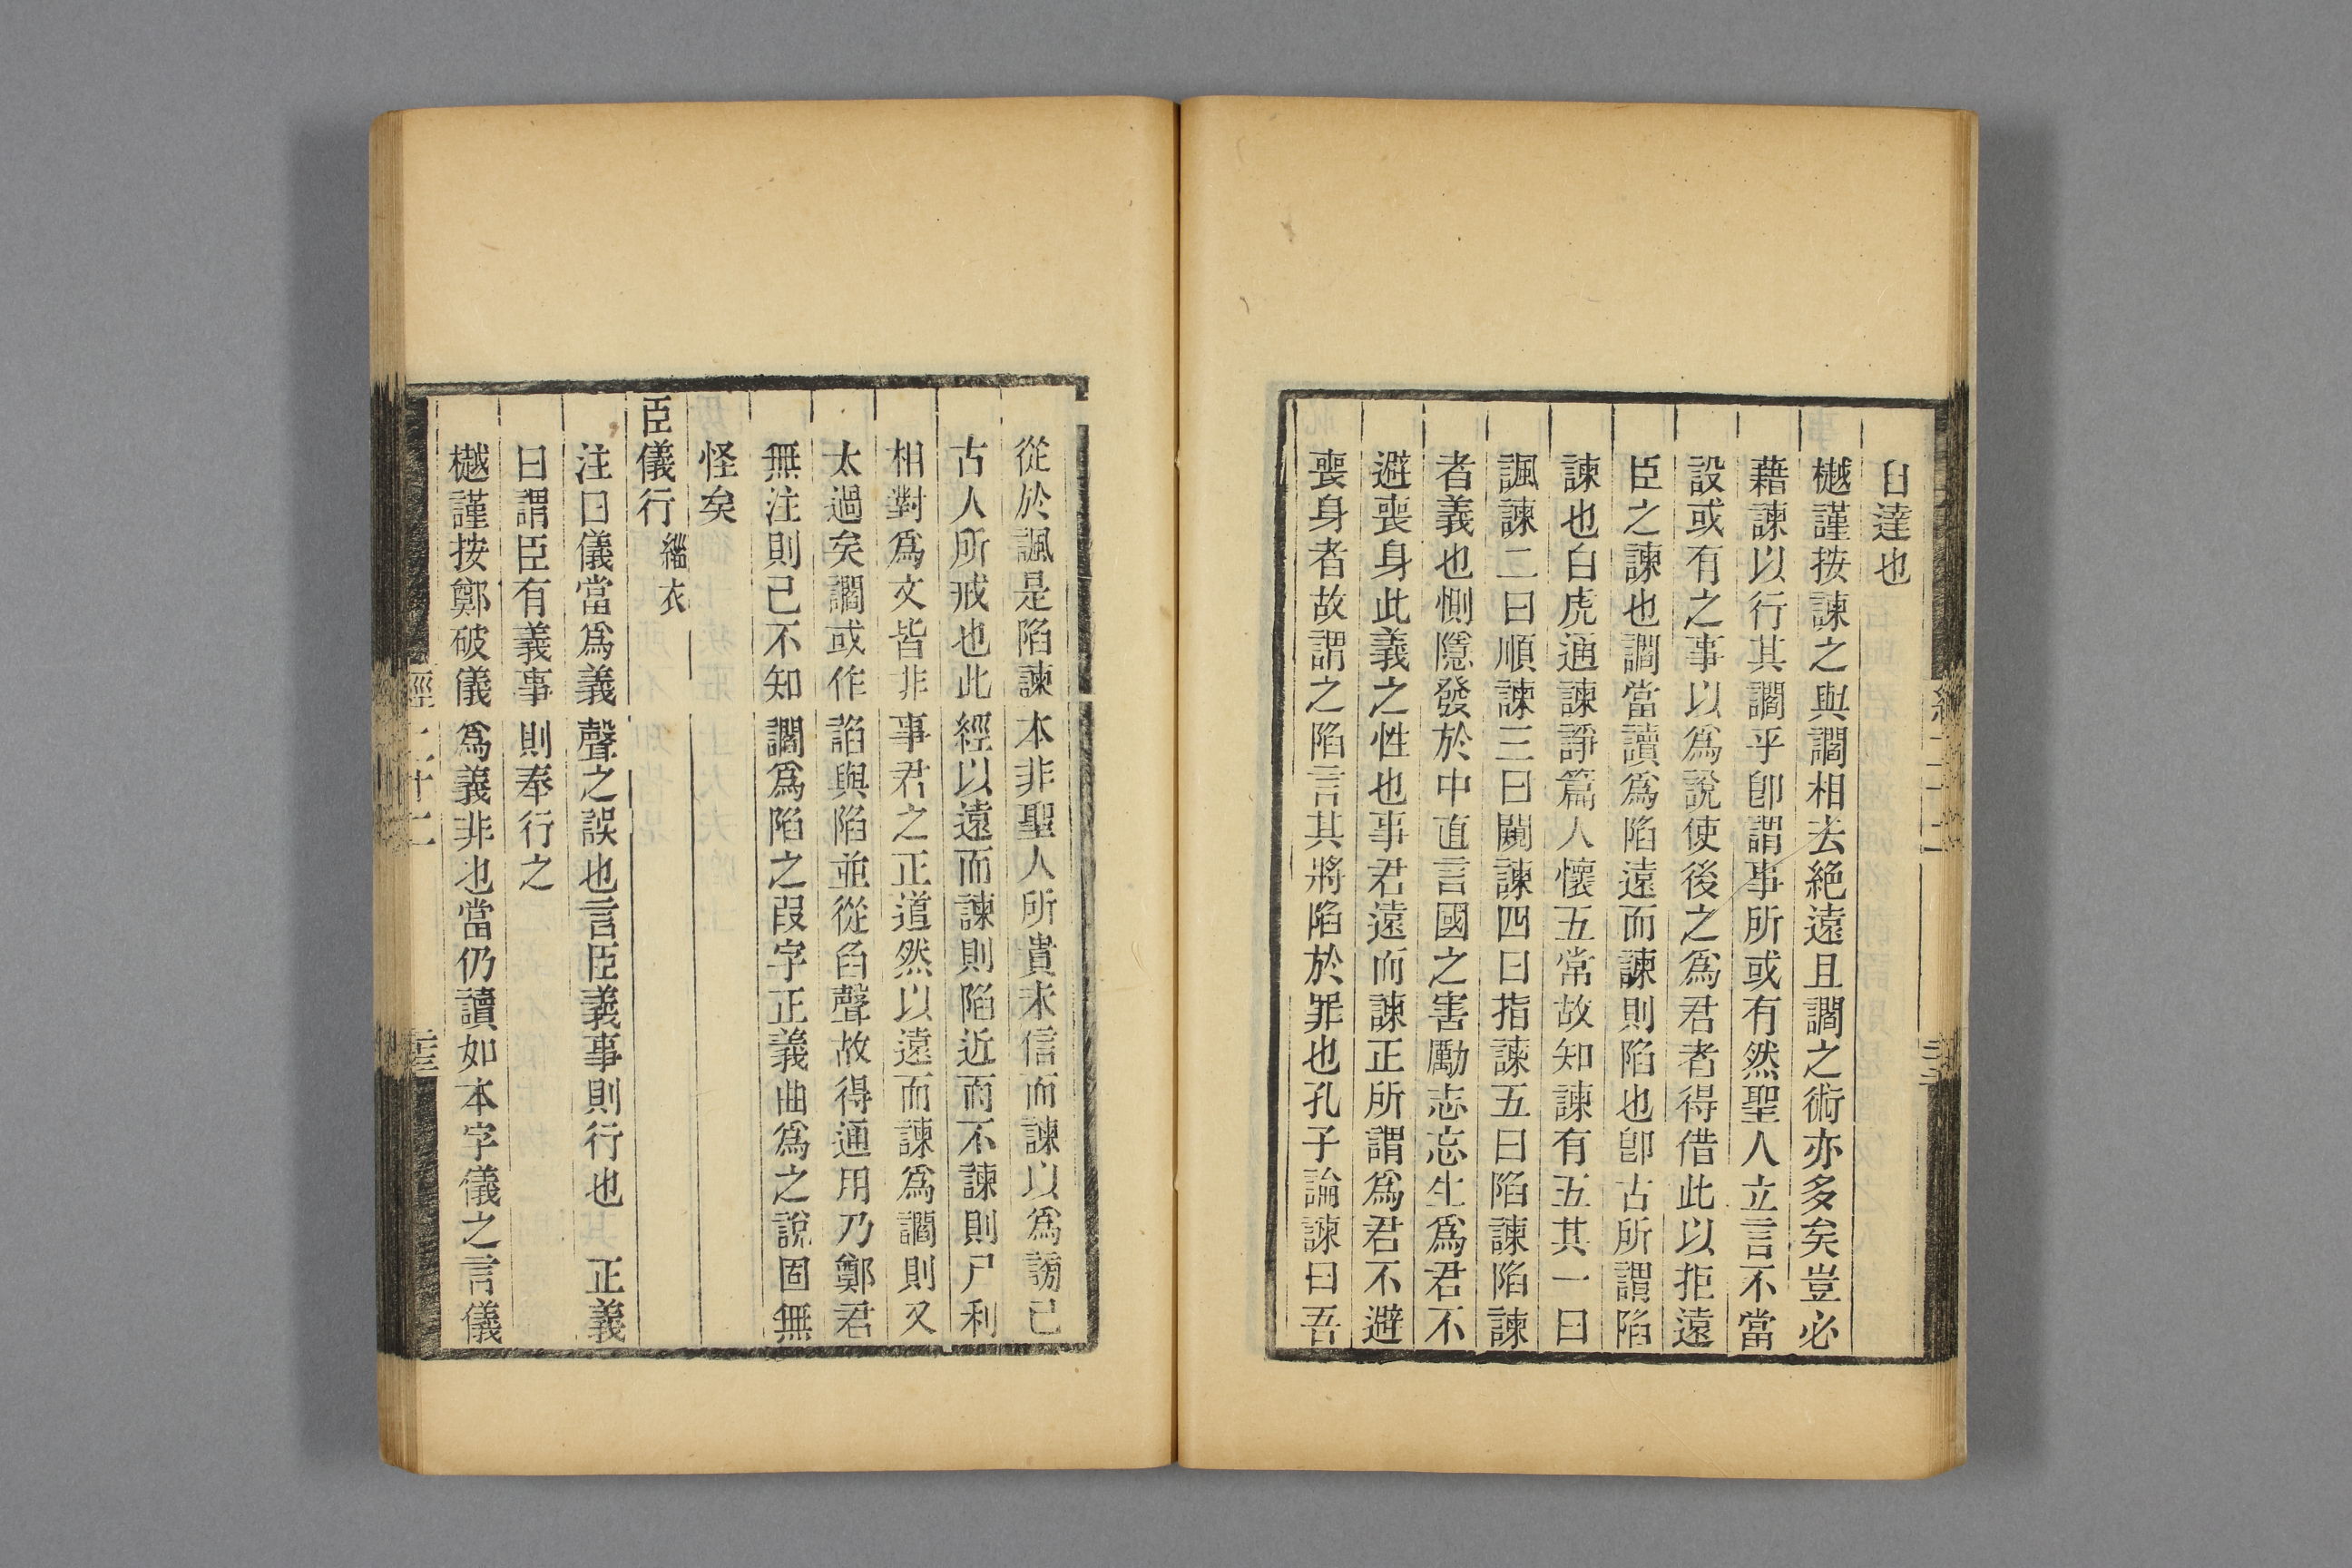 自達也
樾謹按諫之與讇相去絶遠且讇之術亦多矣豈必
藉諫以行其讇乎卽謂事所或有然聖人立言不當
設或有之事以爲說使後之爲君者得借此以拒遠
臣之諫也讇當讀爲陷遠而諫則陷也卽古所謂陷
諫也白虎通諫諍篇人懷五常故知諫有五其一曰
諷諫二曰順諫三曰闚諫四曰指諫五曰陷諫陷諫
者義也惻隱發於中直言國之害勵志忘生爲君不
避喪身此義之性也事君遠而諫正所謂爲君不避
喪身者故謂之陷言其將陷於罪也孔子論諫曰吾
從於諷是陷諫本非聖人所貴未信而諫以爲謗己
古人所戒也此經以遠而諫則陷近而不諫則尸利
相對爲文皆非事君之正道然以遠而諫爲讇則又
太過矣讇或作諂與陷並從臽聲故得通用乃鄭君
無注則已不知讇爲陷之叚字正義曲爲之說固無
怪矣
臣儀行 緇衣
注曰儀當爲義聲之誤也言臣義事則行也 正義
曰謂臣有義事則奉行之
樾謹按鄭破儀爲義非也當仍讀如本字儀之言儀
經二十二